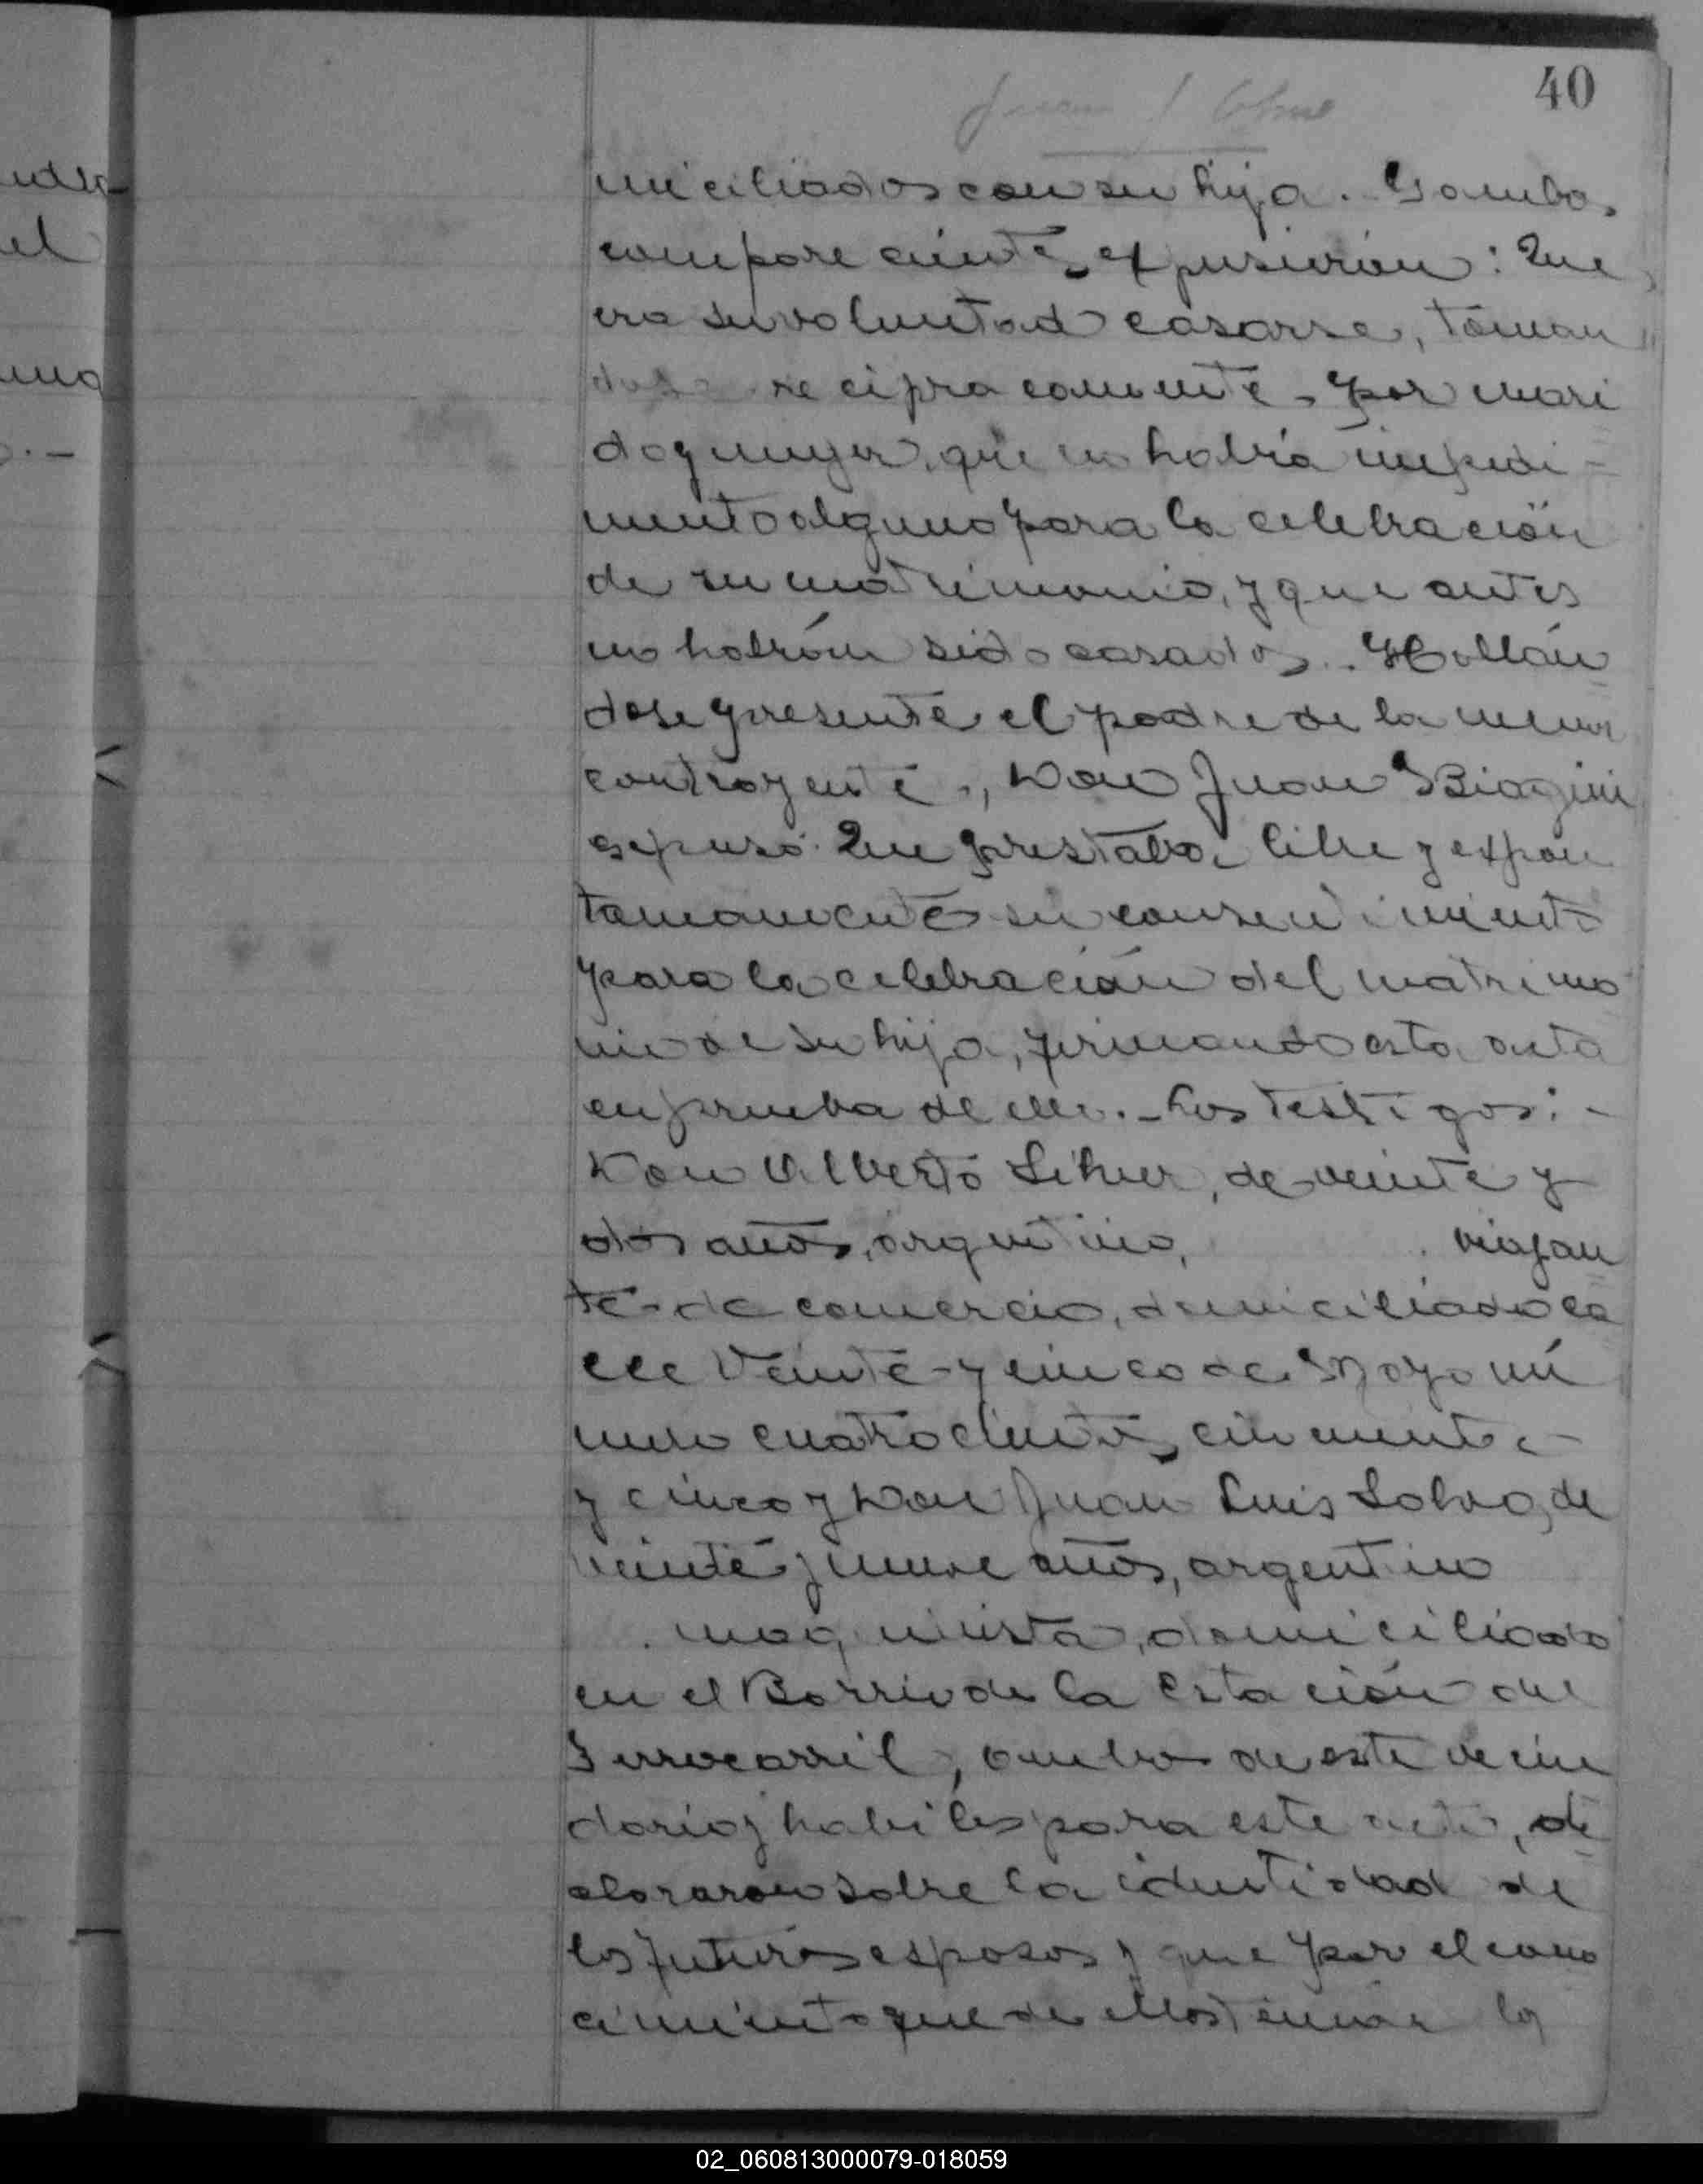 40
Juan J
miciliados con su hija. Y ambos
comparecientes expusieron: Que
era su voluntad casarse, toman
dose reciprocamente por mari
do y mujer, que no habia impedi-
mento alguno para la celebración
de su matrimonio, y que antes
no habian sido casados. Hallan
dose presente el padre de la menor
contrayente, Don Juan Biagini
espuso: Que prestaba libre y expon
taneamente su consentimiento
para la celebración del matrimo
nio de su hija, firmando esta acta
en prueba de ello. - Los testigos: -
Don Alberto de veinte y
dos años, argentino, viajan
te de comercio, domiciliado ca
lle Veinte y cinco de Mayo nú
mero cuatrocientos cincuenta
y cinco y Don Juan Luis de
veinte y nueve años, argentino
maquinista, domiciliado
en el Barrio de la Estación del
Ferrocarril, ambos de este vecin
dario y habiles para este acto, de
clararon sobre la identidad de
los futuros esposos y que por el cono
cimiento que de ellos tienen los
uno
el
02_060813000079-018059